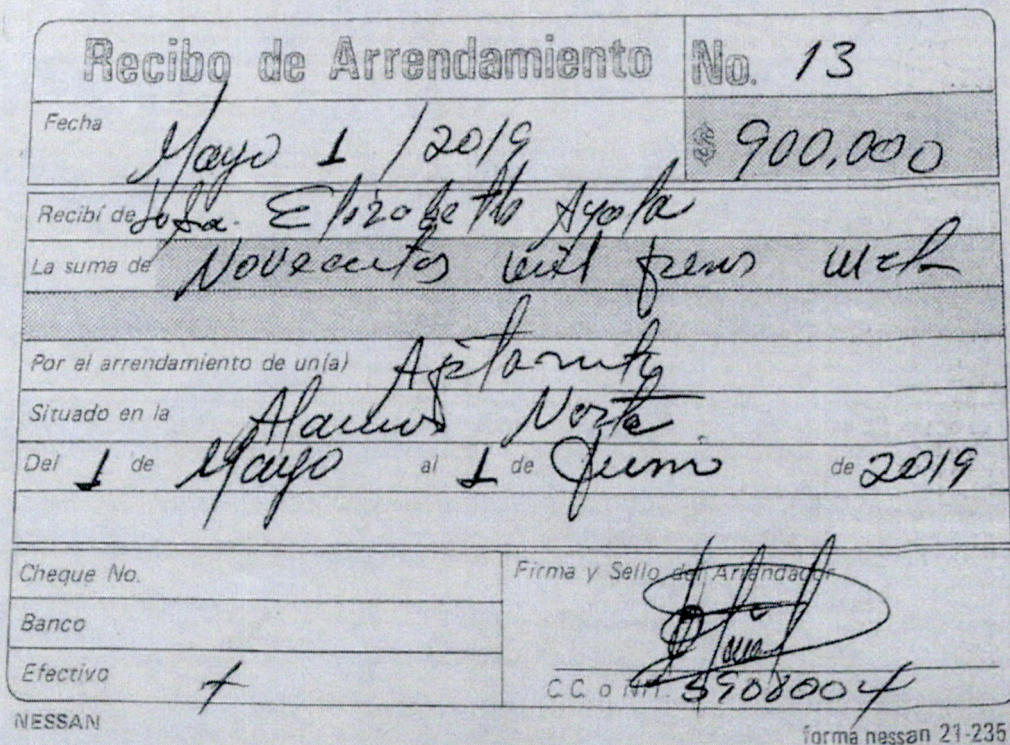 Recibo de Arrendamiento No. 13
Fecha Mayo 1 / 2019 $ 900.000
Recibí de Sra. Elizabeth Ayala
La suma de Novecientos mil pesos
Por el arrendamiento de un(a) Aptamento
Situado en la Alamos Norte
Del 1 de Mayo al 1 de Junio de 2019
Cheque No. Firma y Sello del Arrendador
Banco
Efectivo X
C.C. o NIT. 5908004
NESSAN forma nessan 21-235